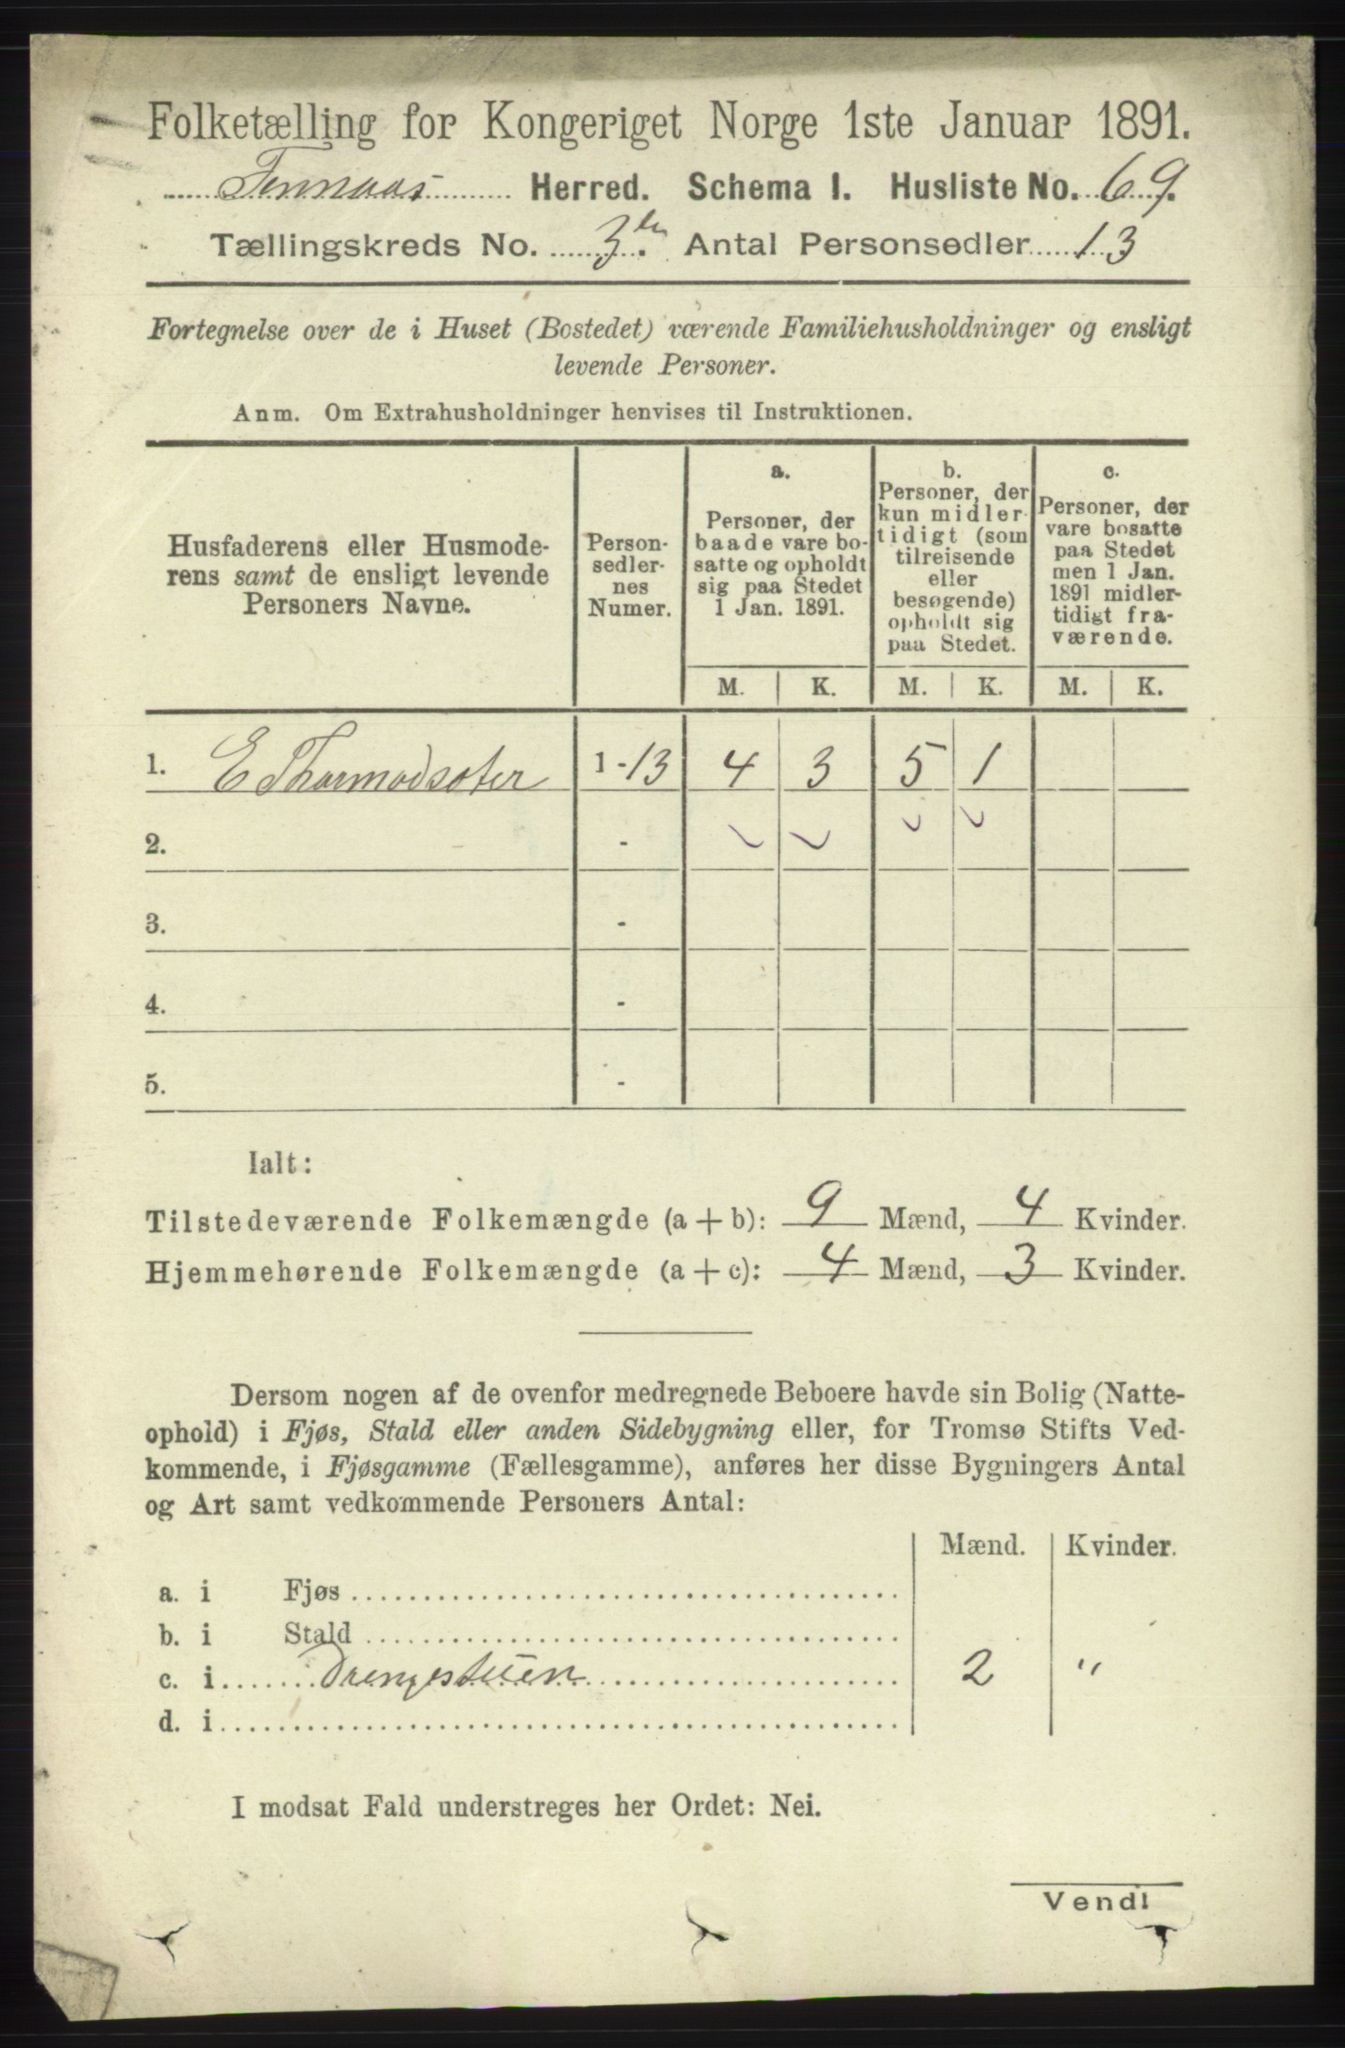 Folketælling for Kongeriget Norge 1ste Januar 1891.
Herred. Schema I. Husliste No. 69.
Tællingskreds No. 3die. Antal Personsedler 13
Fortegnelse over de i Huset (Bostedet) værende Familiehusholdninger og ensligt
levende Personer.
Anm. Om Extrahusholdninger henvises til Instruktionen.
Husfaderens eller Husmode-
rens samt de ensligt levende
Personers Navne.
Person-
sedler-
nes
Numer.
a.
Personer, der
baade vare bo-
satte og opholdt
sig paa Stedet
1 Jan. 1891.
b.
Personer, der
kun midler-
tidigt (som
tilreisende
eller
besøgende)
opholdt sig
paa Stedet.
c.
Personer, der
vare bosatte
paa Stedet
men 1 Jan.
1891 midler-
tidigt fra-
værende.
M. K. M. K. M. K.
1. E Thormodsæter 1-13 4 3 5 1
2. -
3. -
4. -
5. -
Ialt:
Tilstedeværende Folkemængde (a + b): 9 Mænd, 4 Kvinder.
Hjemmehørende Folkemængde (a + c): 4 Mænd, 3 Kvinder.
Dersom nogen af de ovenfor medregnede Beboere havde sin Bolig (Natte-
ophold) i Fjøs, Stald eller anden Sidebygning eller, for Tromsø Stifts Ved-
kommende, i Fjøsgamme (Fællesgamme), anføres her disse Bygningers Antal
og Art samt vedkommende Personers Antal:
Mænd. Kvinder.
a. i Fjøs
b. i Stald
c. i Drengestuen 2 "
d. i
I modsat Fald understreges her Ordet: Nei.
Vend!